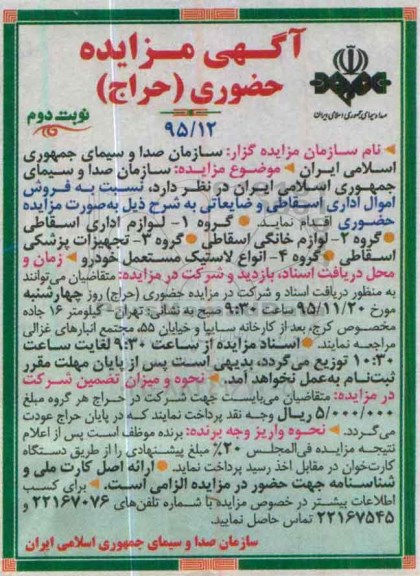 آگهی مزایده
حضوری (حراج)
صدا و سیمای جمهوری اسلامی ایران
نوبت دوم
۹۵/۱۲
نام سازمان مزایده گزار: سازمان صدا و سیمای جمهوری
اسلامی ایران موضوع مزایده: سازمان صدا و سیمای
جمهوری اسلامی ایران در نظر دارد، نسبت به فروش
اموال اداری اسقاطی و ضایعاتی به شرح ذیل به‌صورت مزایده
حضوری اقدام نماید. ● گروه ۱- لوازم اداری اسقاطی
● گروه ۲- لوازم خانگی اسقاطی ● گروه ۳- تجهیزات پزشکی
اسقاطی ● گروه ۴- انواع لاستیک مستعمل خودرو زمان و
محل دریافت اسناد، بازدید و شرکت در مزایده: متقاضیان می‌توانند
به منظور دریافت اسناد و شرکت در مزایده حضوری (حراج) روز چهارشنبه
مورخ ۹۵/۱۱/۲۰ ساعت ۹:۳۰ صبح به نشانی: تهران - کیلومتر ۱۶ جاده
مخصوص کرج، بعد از کارخانه سایپا و خیابان ۵۵، مجتمع انبارهای غزالی
مراجعه نمایند. ● اسناد مزایده از ساعت ۹:۳۰ لغایت ساعت
۱۰:۳۰ توزیع می‌گردد، بدیهی است پس از پایان مهلت مقرر
ثبت‌نام به‌عمل نخواهد آمد. نحوه و میزان تضمین شرکت
در مزایده: متقاضیان می‌بایست جهت شرکت در حراج هر گروه مبلغ
۵/۰۰۰/۰۰۰ ریال وجه نقد پرداخت نمایند که در پایان حراج عودت
می‌گردد. نحوه واریز وجه برنده: برنده موظف است پس از اعلام
نتیجه مزایده فی‌المجلس ۲۰٪ مبلغ پیشنهادی را از طریق دستگاه
کارت‌خوان در مقابل اخذ رسید پرداخت نماید. ● ارائه اصل کارت ملی و
شناسنامه جهت حضور در مزایده الزامی است. برای کسب
اطلاعات بیشتر در خصوص مزایده با شماره تلفن‌های ۲۲۱۶۷۰۷۶ و
۲۲۱۶۷۵۴۵ تماس حاصل نمایید.
سازمان صدا و سیمای جمهوری اسلامی ایران